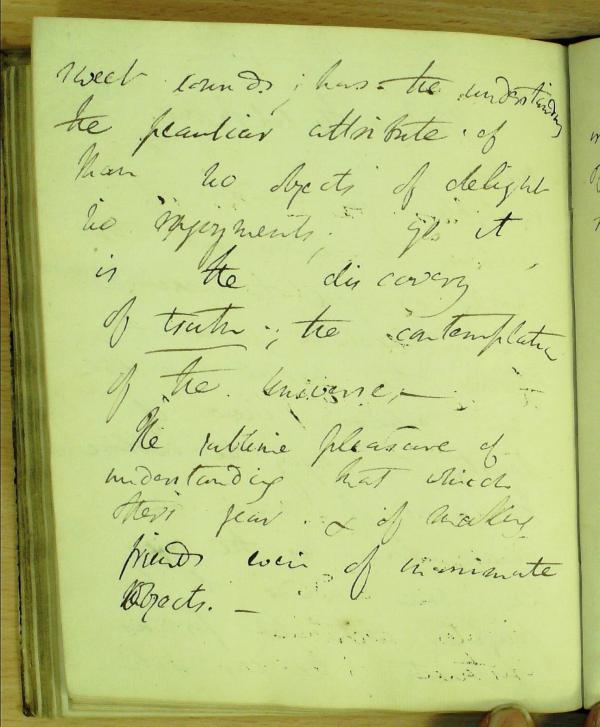 sweet sounds; has the understanding
the peculiar attribute of
Man no objects of delight
no enjoyments. yes it
is the discovery
of truth; the contemplation
of the universe, —
The sublime pleasure of
understanding that which
others fear & of making
friends even of inanimate
objects. —